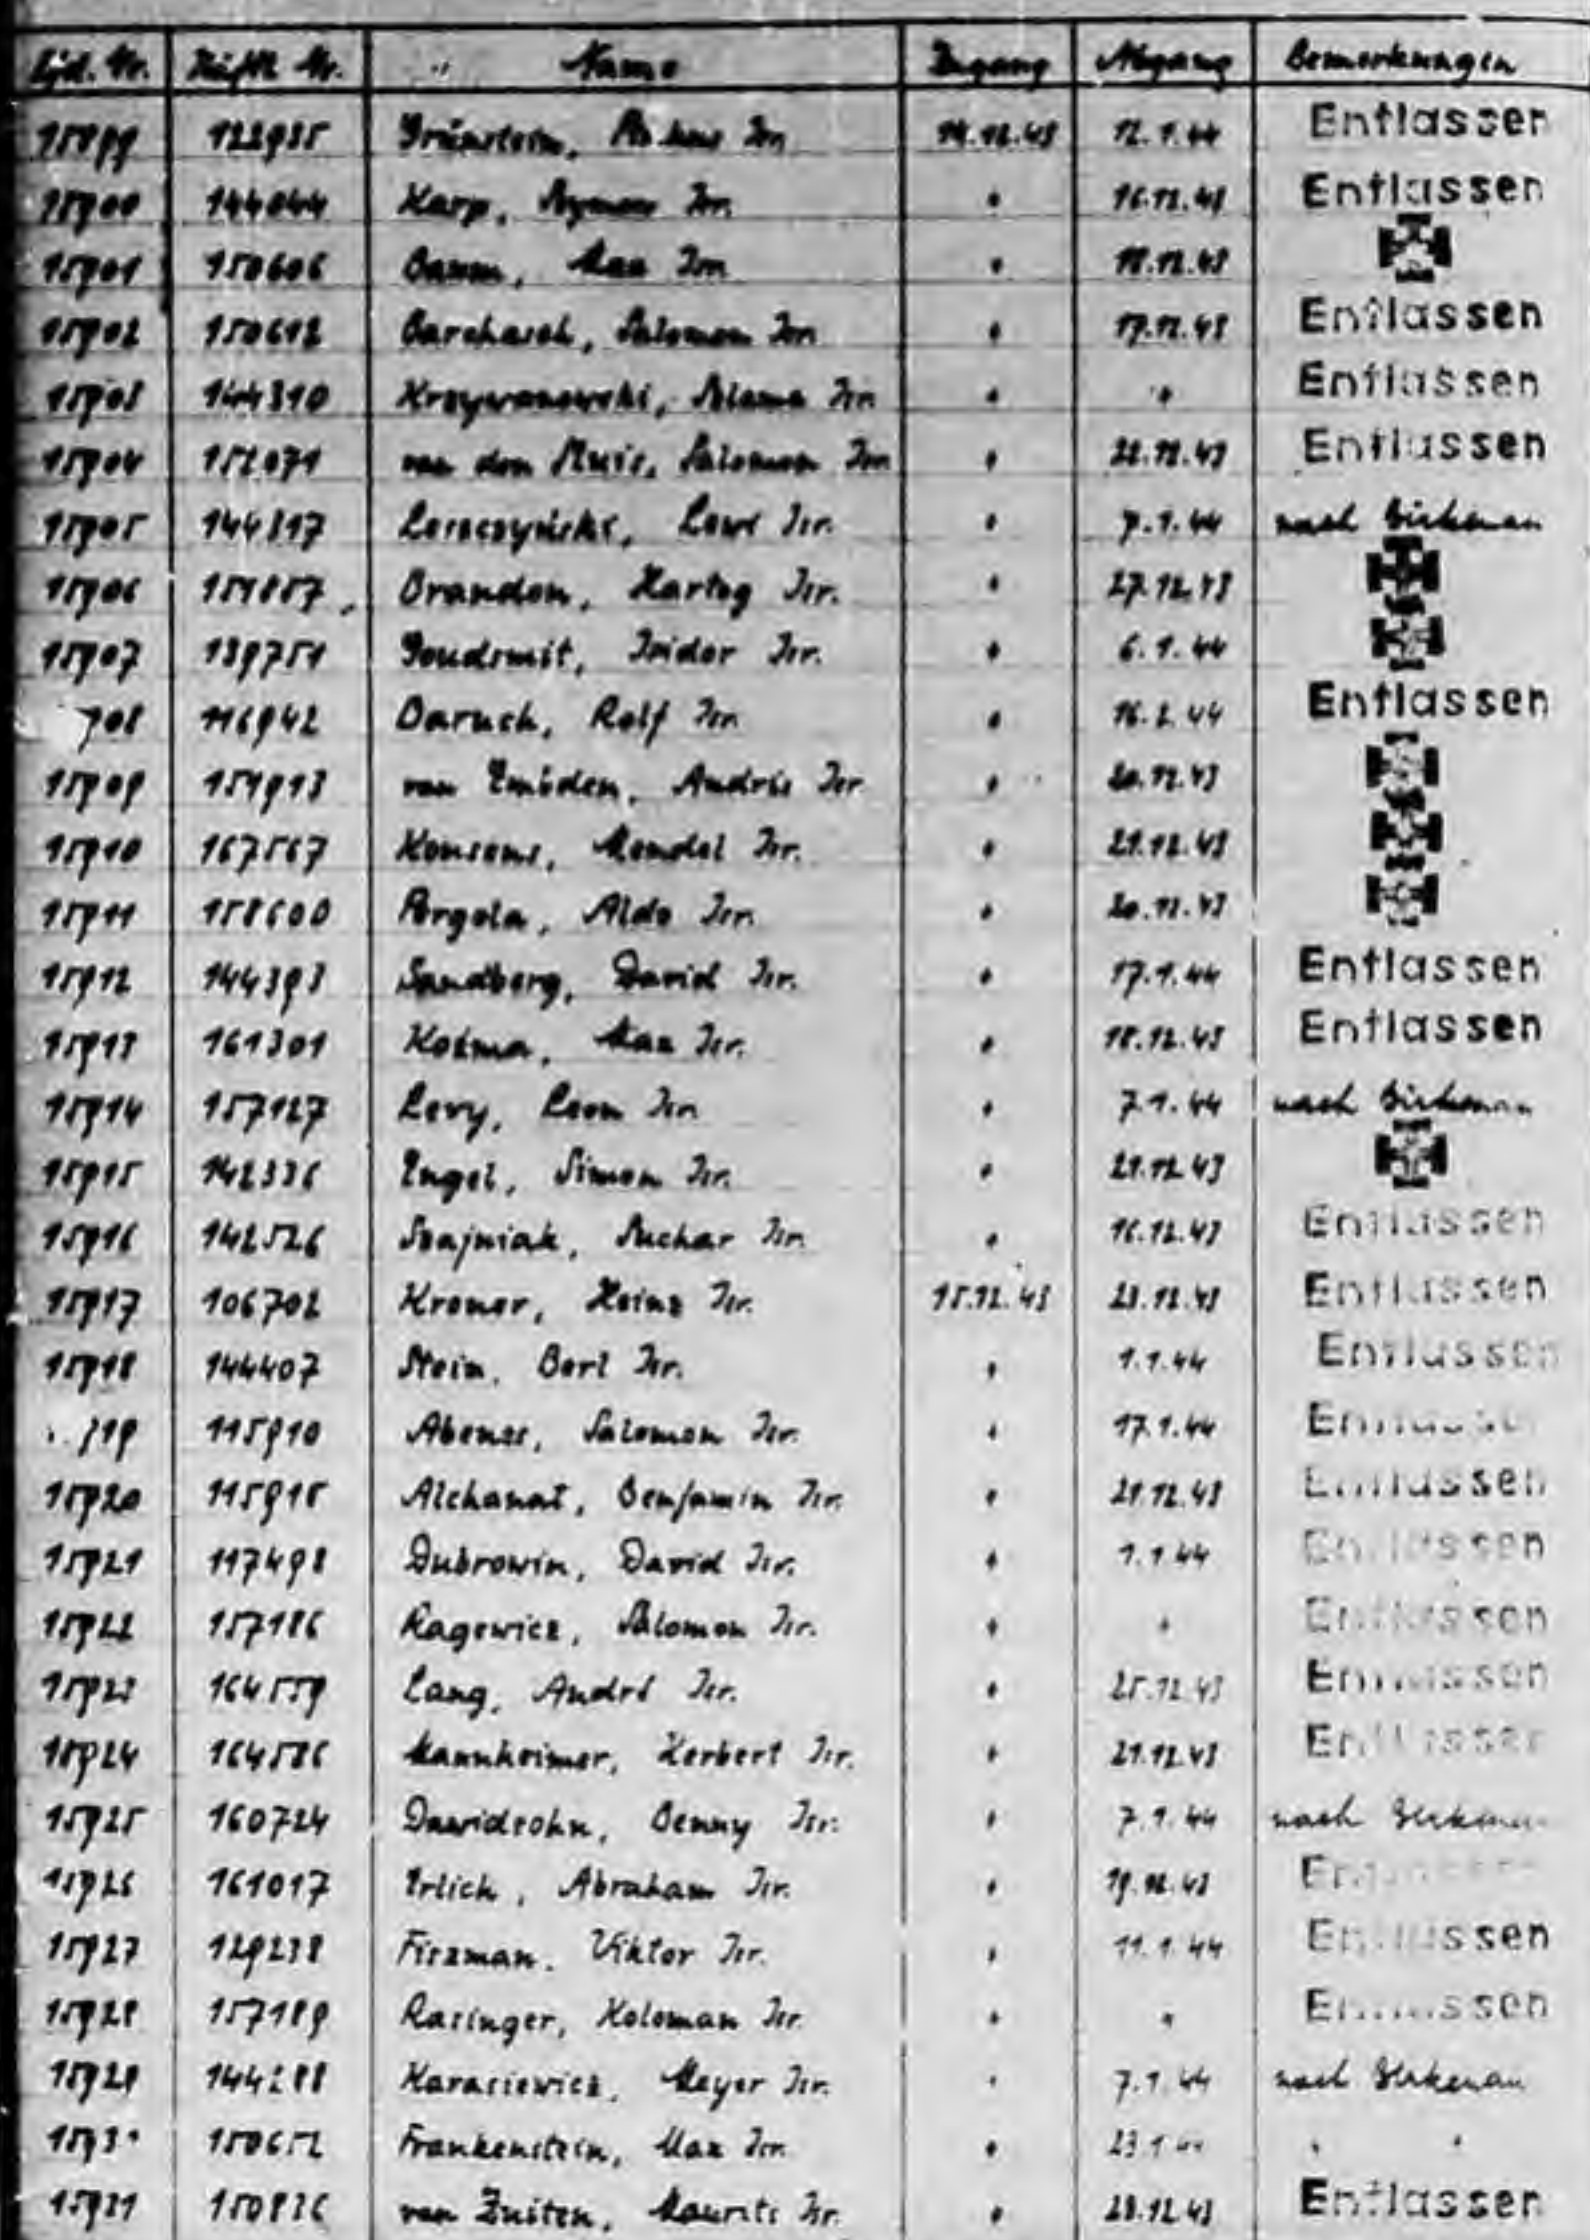 Lfd. Nr. Häftl. Nr. Name Zugang Abgang Bemerkungen
15899 122935 Grünstein, Isr. 14.12.43 12.1.44 Entlassen
15900 144044 Karp, Szymon Isr. " 16.12.43 Entlassen
15901 150606 Bamm, Max Isr. " 18.12.43
15902 150612 Barchasch, Salomon Isr. " 17.12.43 Entlassen
15903 144310 Krzywanowski, Szlama Isr. " " Entlassen
15904 152071 van den Muis, Salomon Isr. " 22.12.43 Entlassen
15905 144317 Lesaczyński, Lewi Isr. " 7.1.44 nach Birkenau
15906 151857 Brandon, Hartog Isr. " 27.12.43
15907 139751 Goudsmit, Isidor Isr. " 6.1.44
908 116942 Baruch, Rolf Isr. " 16.2.44 Entlassen
15909 151913 van Embden, Andries Isr. " 20.12.43
15910 167567 Konsens, Mendel Isr. " 21.12.43
15911 158600 Pergola, Aldo Isr. " 20.12.43
15912 144393 Sandberg, David Isr. " 17.1.44 Entlassen
15913 161301 Kosma, Max Isr. " 18.12.43 Entlassen
15914 157127 Levy, Leon Isr. " 7.1.44 nach Birkenau
15915 142336 Engel, Simon Isr. " 21.12.43
15916 142526 Szajniak, Suchar Isr. " 16.12.43 Entlassen
15917 106702 Kroner, Heinz Isr. 15.12.43 23.12.43 Entlassen
15918 144407 Stein, Berl Isr. " 1.1.44 Entlassen
919 115910 Abenes, Salomon Isr. " 17.1.44 Entlassen
15920 115915 Alchanat, Benjamin Isr. " 21.12.43 Entlassen
15921 117498 Dubrowin, David Isr. " 1.1.44 Entlassen
15922 157186 Ragewicz, Salomon Isr. " " Entlassen
15923 164559 Lang, André Isr. " 25.12.43 Entlassen
15924 164586 Mannheimer, Herbert Isr. " 21.12.43 Entlassen
15925 160724 Dawidsohn, Benny Isr. " 7.1.44 nach Birkenau
15926 161017 Erlich, Abraham Isr. " 19.12.43 Entlassen
15927 129238 Fiszman, Viktor Isr. " 11.1.44 Entlassen
15928 157189 Rasinger, Koloman Isr. " " Entlassen
15929 144288 Karasiewicz, Meyer Isr. " 7.1.44 nach Birkenau
1593 150652 Frankenstein, Max Isr. " 23.1.44 " "
15931 150836 van Zuiten, Maurits Isr. " 23.12.43 Entlassen